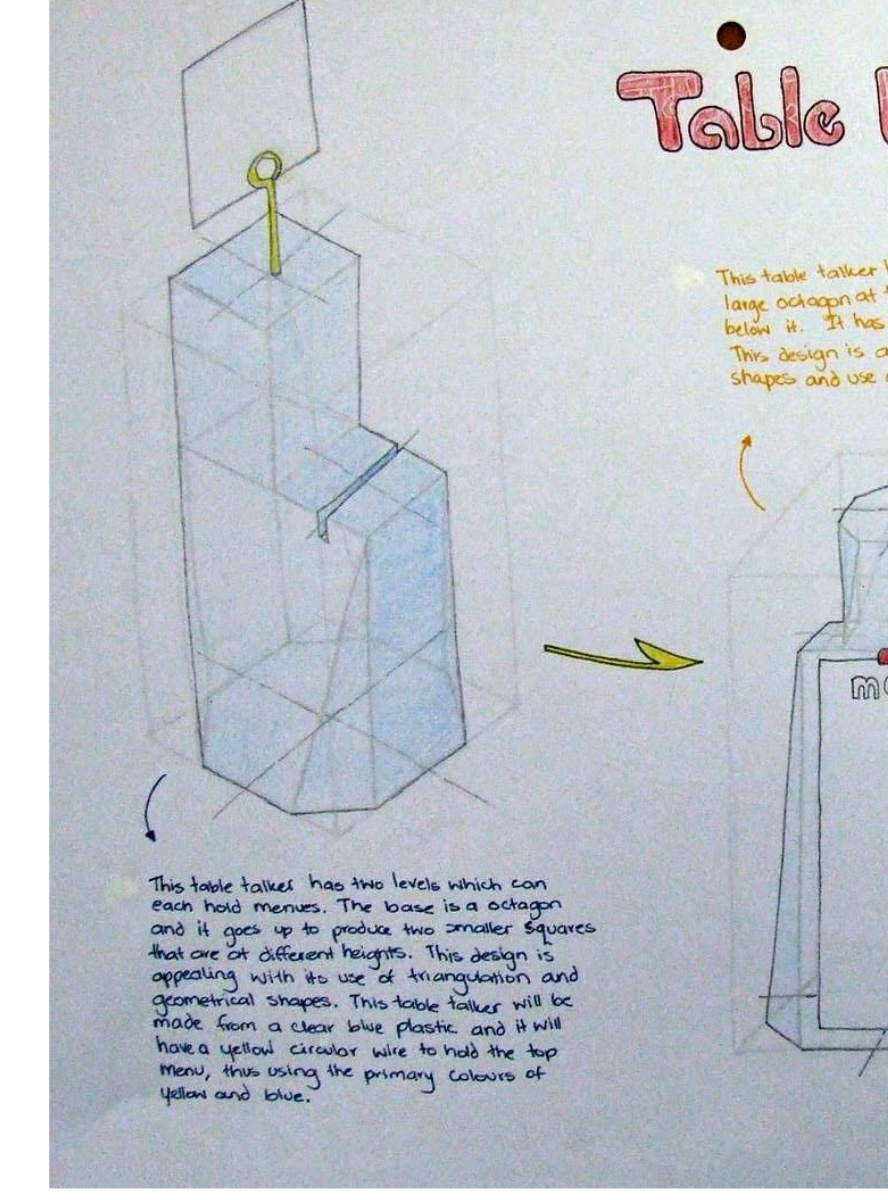 Table
This table talker
large octagon at
below it. It has
This design is a
shapes and use
This table talker has two levels which can
each hold menues. The base is a octagon
and it goes up to produce two smaller squares
that are at different heights. This design is
appealing with its use of triangulation and
geometrical shapes. This table talker will be
made from a clear blue plastic and it will
have a yellow circular wire to hold the top
menu, thus using the primary colours of
yellow and blue.